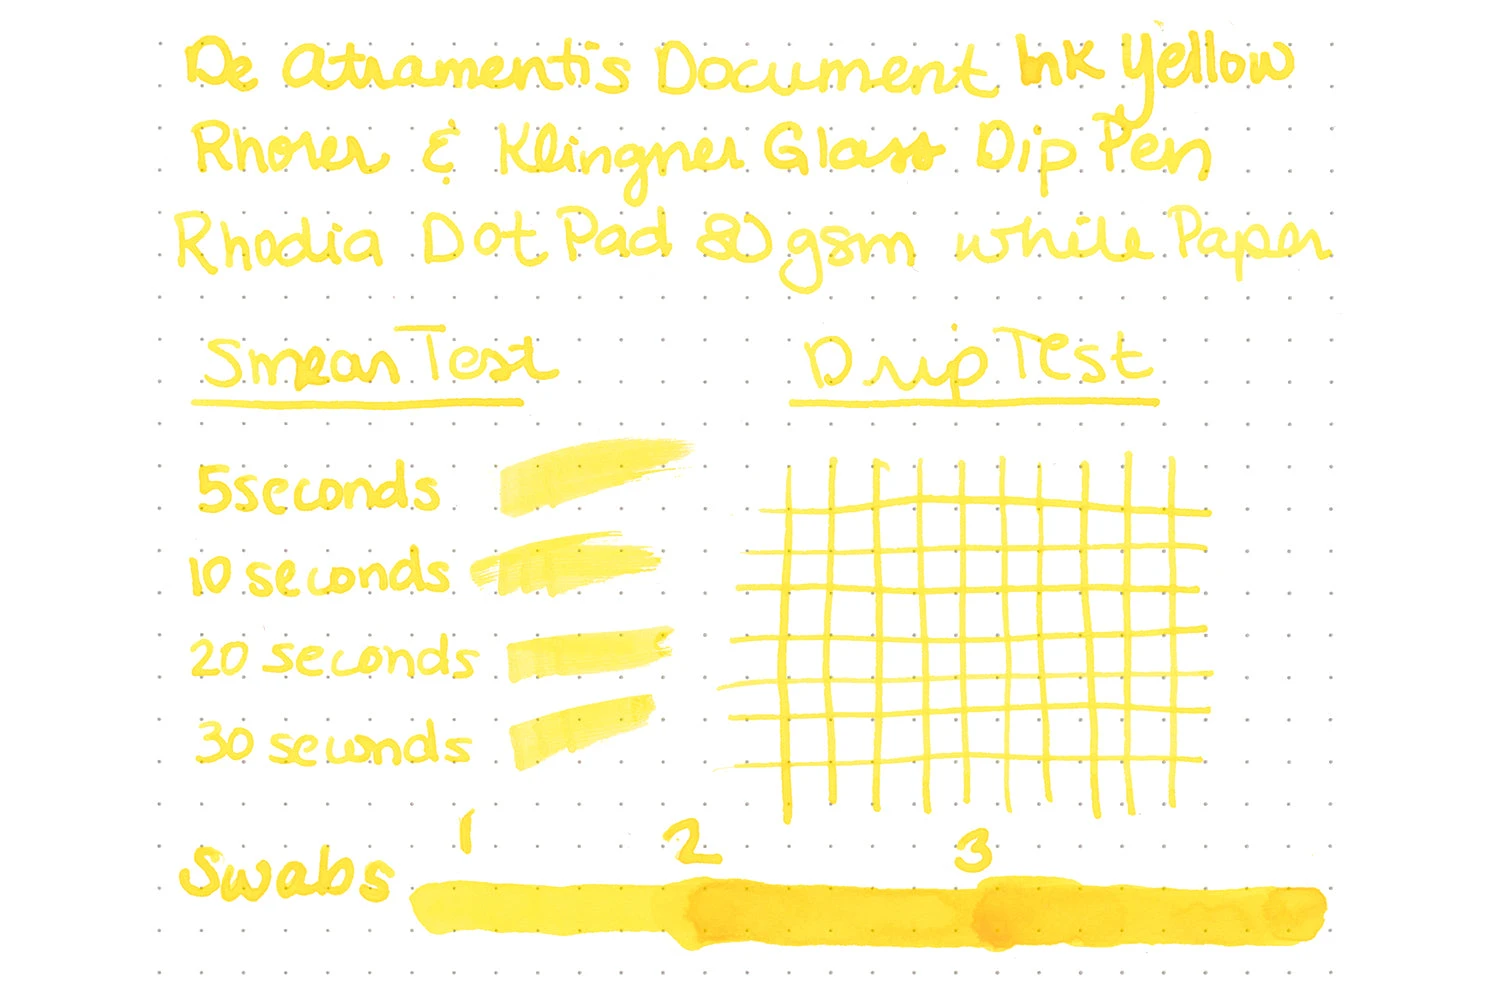 De Atramentis Document Ink Yellow
Rhorer & Klingner Glass Dip Pen
Rhodia Dot Pad 80 gsm white Paper
Smear Test
Drip Test
5 seconds
10 seconds
20 seconds
30 seconds
1 2 3
Swabs